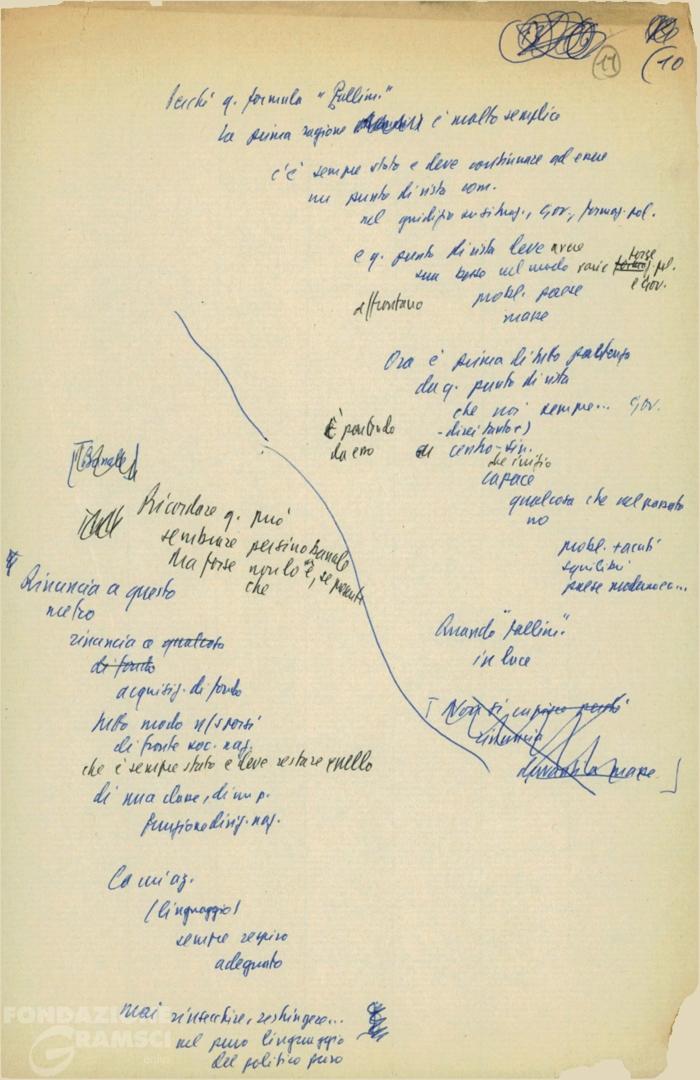 11
(10
Perché q. formula "Fallim."
La prima ragione è molto semplice
c'è sempre stato e deve continuare ad essere
un punto di vista com.
nel giudizio su situaz., Gov., formaz. pol.
e q. punto di vista deve avere
sua base nel modo varie forze pol.
e Gov.
affrontano probl. paese
masse
Ora è prima di tutto partendo
da q. punto di vista
che noi sempre... Gov.
È partendo - direi tanto c)
da esso di centro-sin.
che inizio
capace
qualcosa che nel passato
no
probl. + acuti
squilibri
paese moderno ecc...
Quando "fallim."
in luce
[Non si capisce perché
rinuncia
davanti a masse ]
[Banale]
Ricordare q. può
sembrare persino banale
Ma forse non lo è, se pensate
che
Rinuncia a questo
metro
rinuncia a qualcosa
di fondo
acquisiz. di fondo
tutto modo n/ porsi
di fronte soc. naz.
che è sempre stato e deve restare quello
di una classe, di un p.
funzione dirig. naz.
Comiaz.
(linguaggio)
sempre respiro
adeguato
mai rinsecchire, restringere...
nel puro linguaggio
del politico puro
FONDAZIONE
GRAMSCI